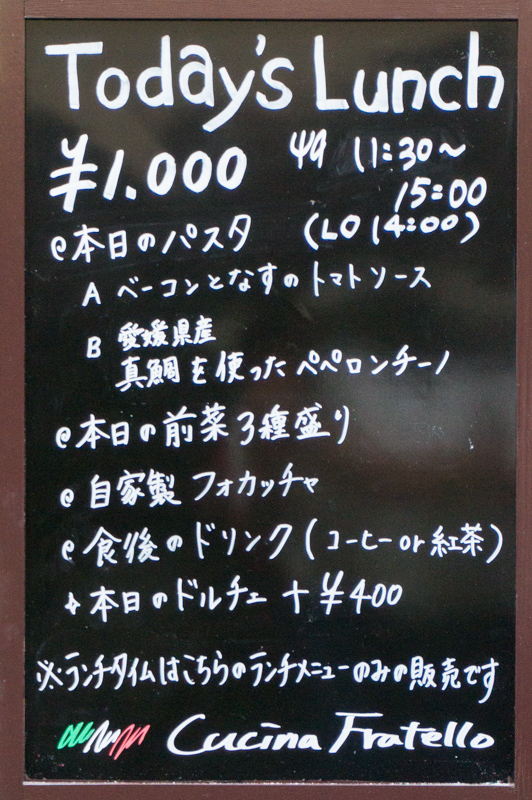 Today's Lunch
¥1.000 11:30〜
15:00
(LO 14:00)
@本日のパスタ
A ベーコンとなすのトマトソース
B 愛媛県産
真鯛を使ったペペロンチーノ
@本日の前菜3種盛り
@自家製フォカッチャ
@食後のドリンク(コーヒーor紅茶)
+本日のドルチェ +¥400
※ランチタイムはこちらのランチメニューのみの販売です
Cucina Fratello